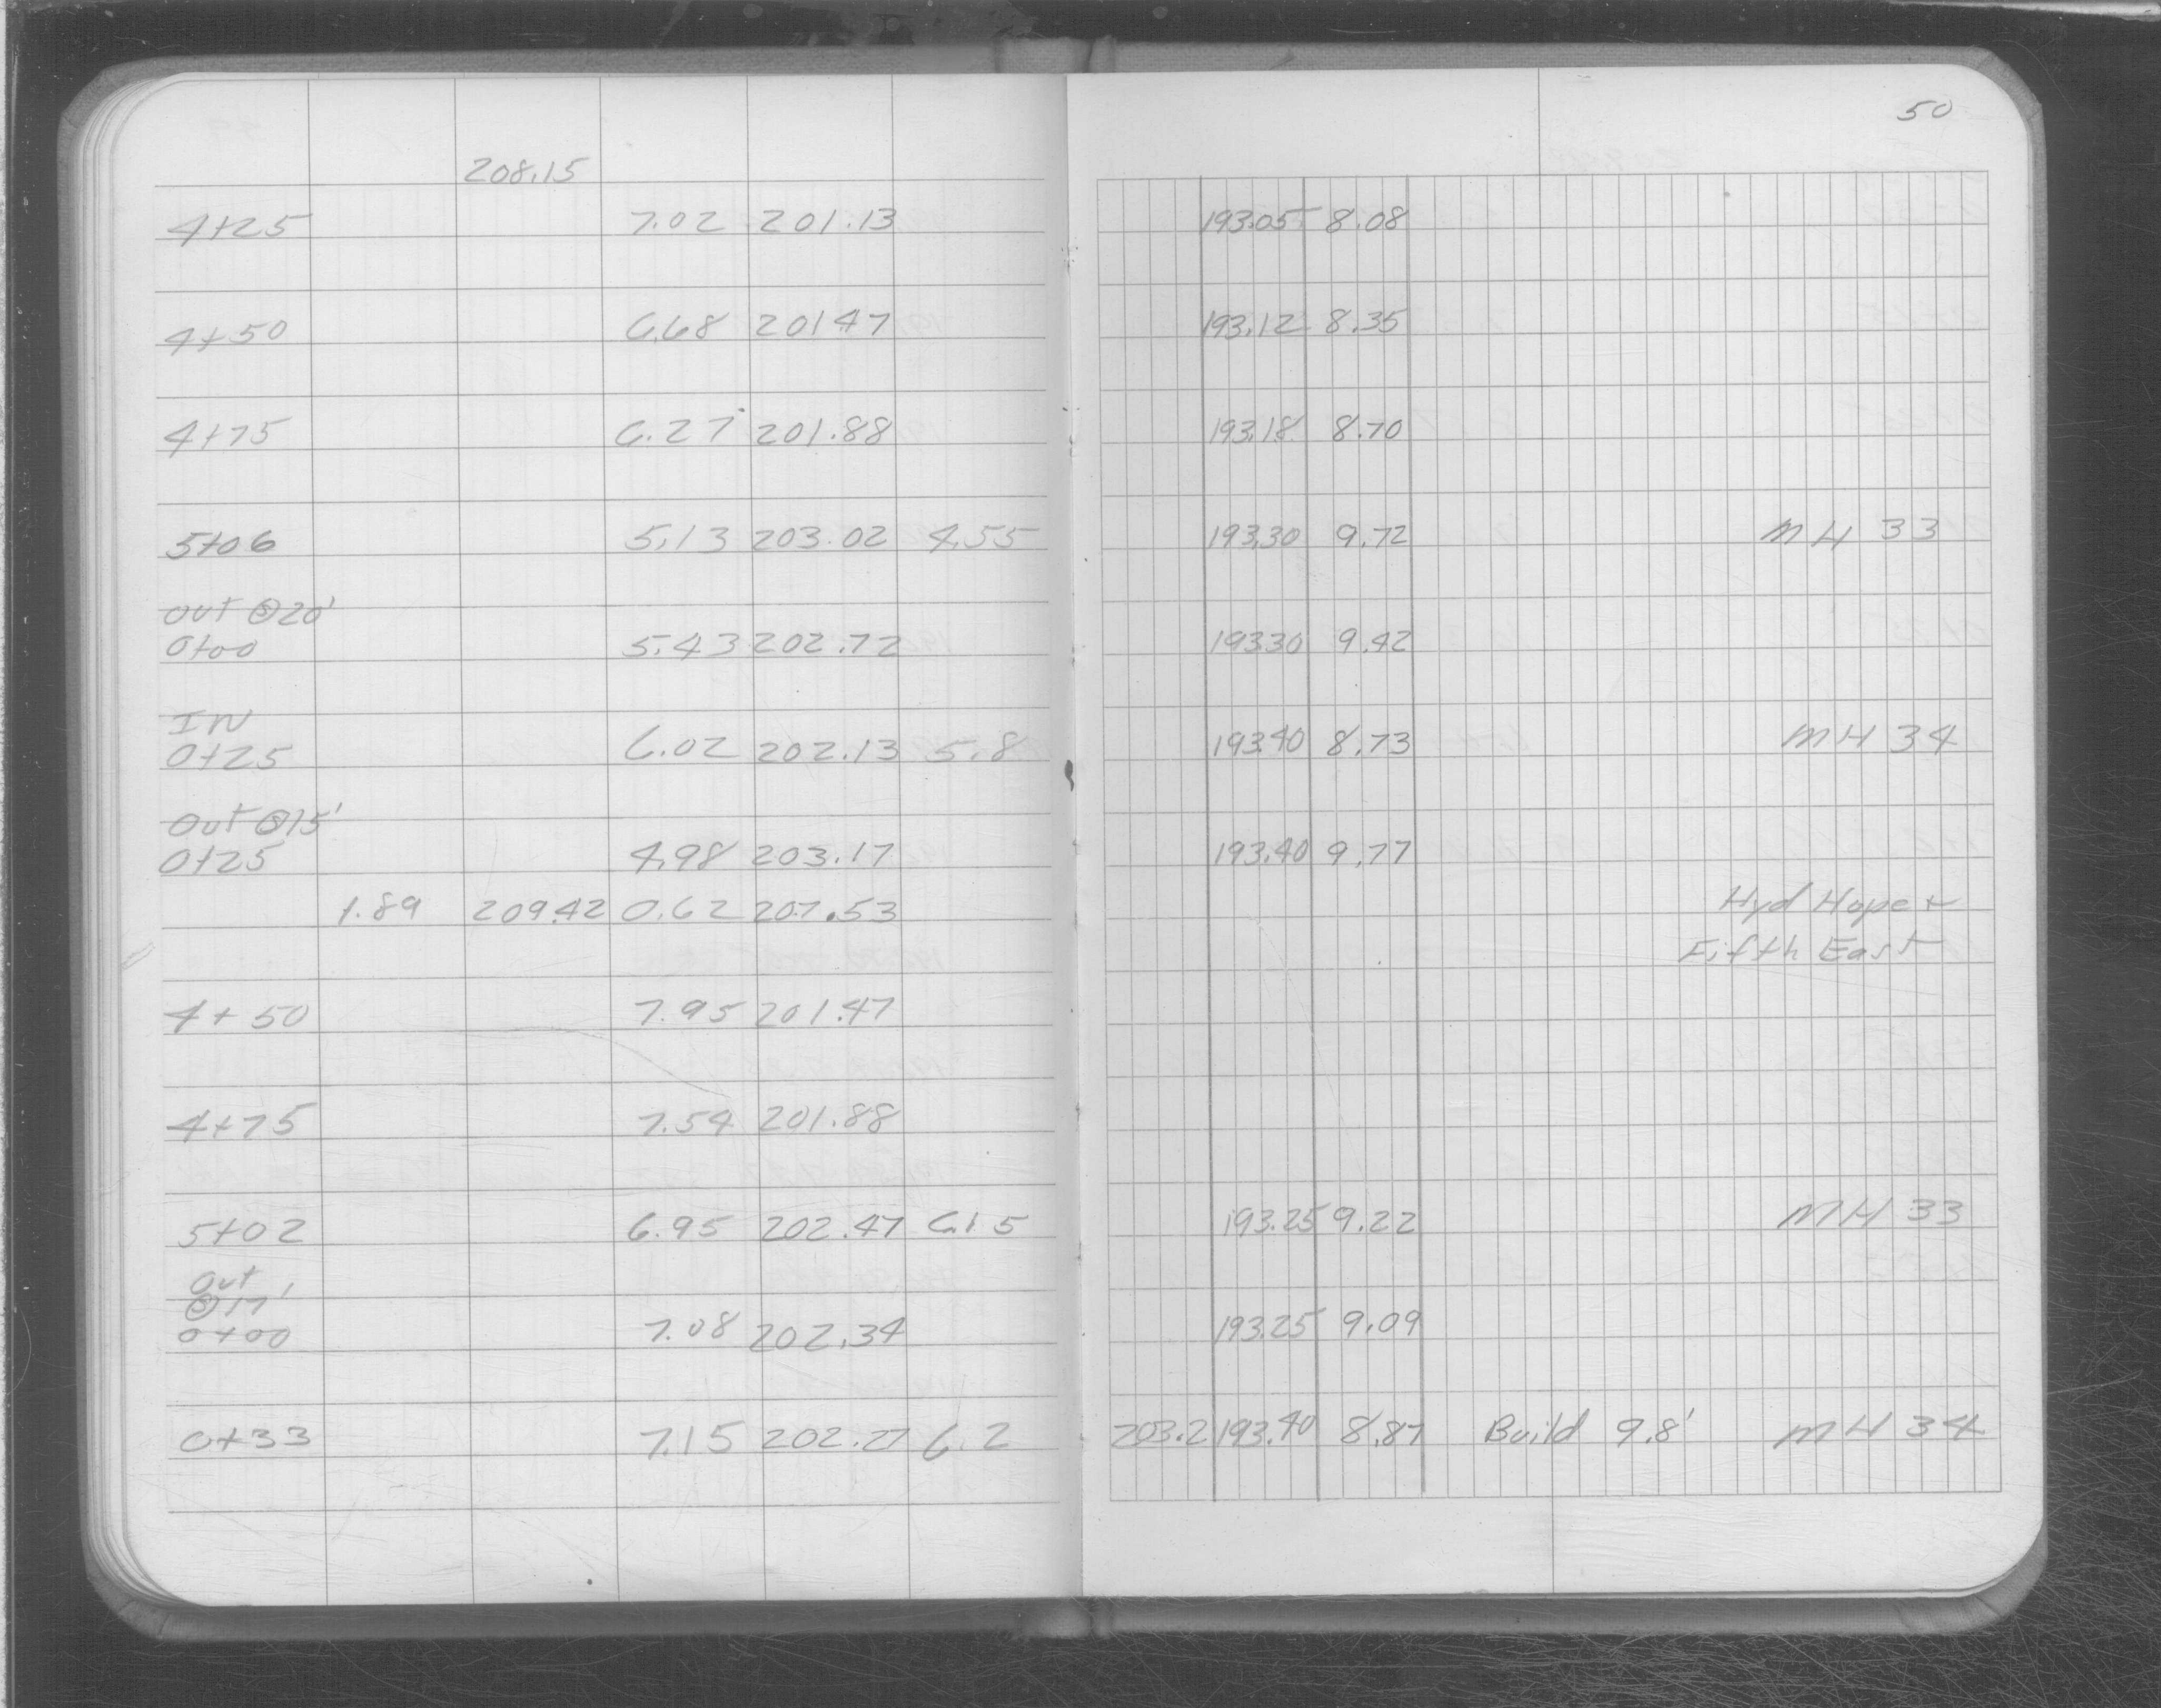 50
208.15
4+25 7.02 201.13 193.05 8.08
4+50 6.68 201.47 193.12 8.35
4+75 6.27 201.88 193.18 8.70
5+06 5.13 203.02 4.55 193.30 9.72 MH 33
out @ 20'
0+00 5.43 202.72 193.30 9.42
IN
0+25 6.02 202.13 5.8 193.40 8.73 MH 34
Out @ 15'
0+25 4.98 203.17 193.40 9.77
1.89 209.42 0.62 207.53 Hyd Hope +
Fifth East
4+50 7.95 201.47
4+75 7.54 201.88
5+02 6.95 202.47 6.15 193.25 9.22 MH 33
Out
@ 17'
0+00 7.08 202.34 193.25 9.09
0+33 7.15 202.27 6.2 203.2 193.40 8.87 Build 9.8' MH 34